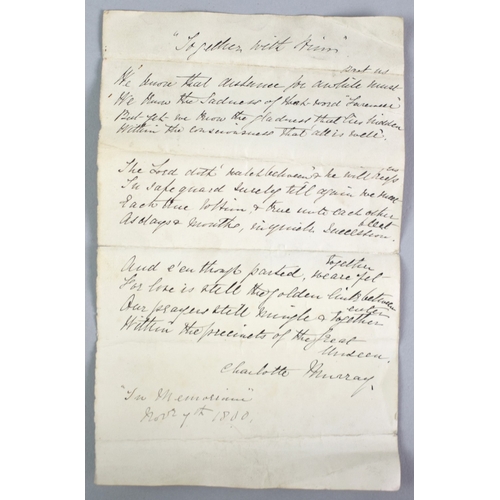 "Together with Him"
part us
We know that distance for awhile must
We know the sadness of that word "Farewell"
But yet we know the gladness that lies hidden
Within the consciousness that all is well.
us
The Lord doth watch between & he will keep
In safeguard surely till again we meet
Each true to him, & true unto each other
fleet
As days & months, in quick succession.
together
And e'en though parted, we are yet
For love is still the golden link between
enter
Our prayers still mingle & together
Within the precincts of the great
Unseen.
Charlotte Murray.
"In Memoriam"
Novr 7th